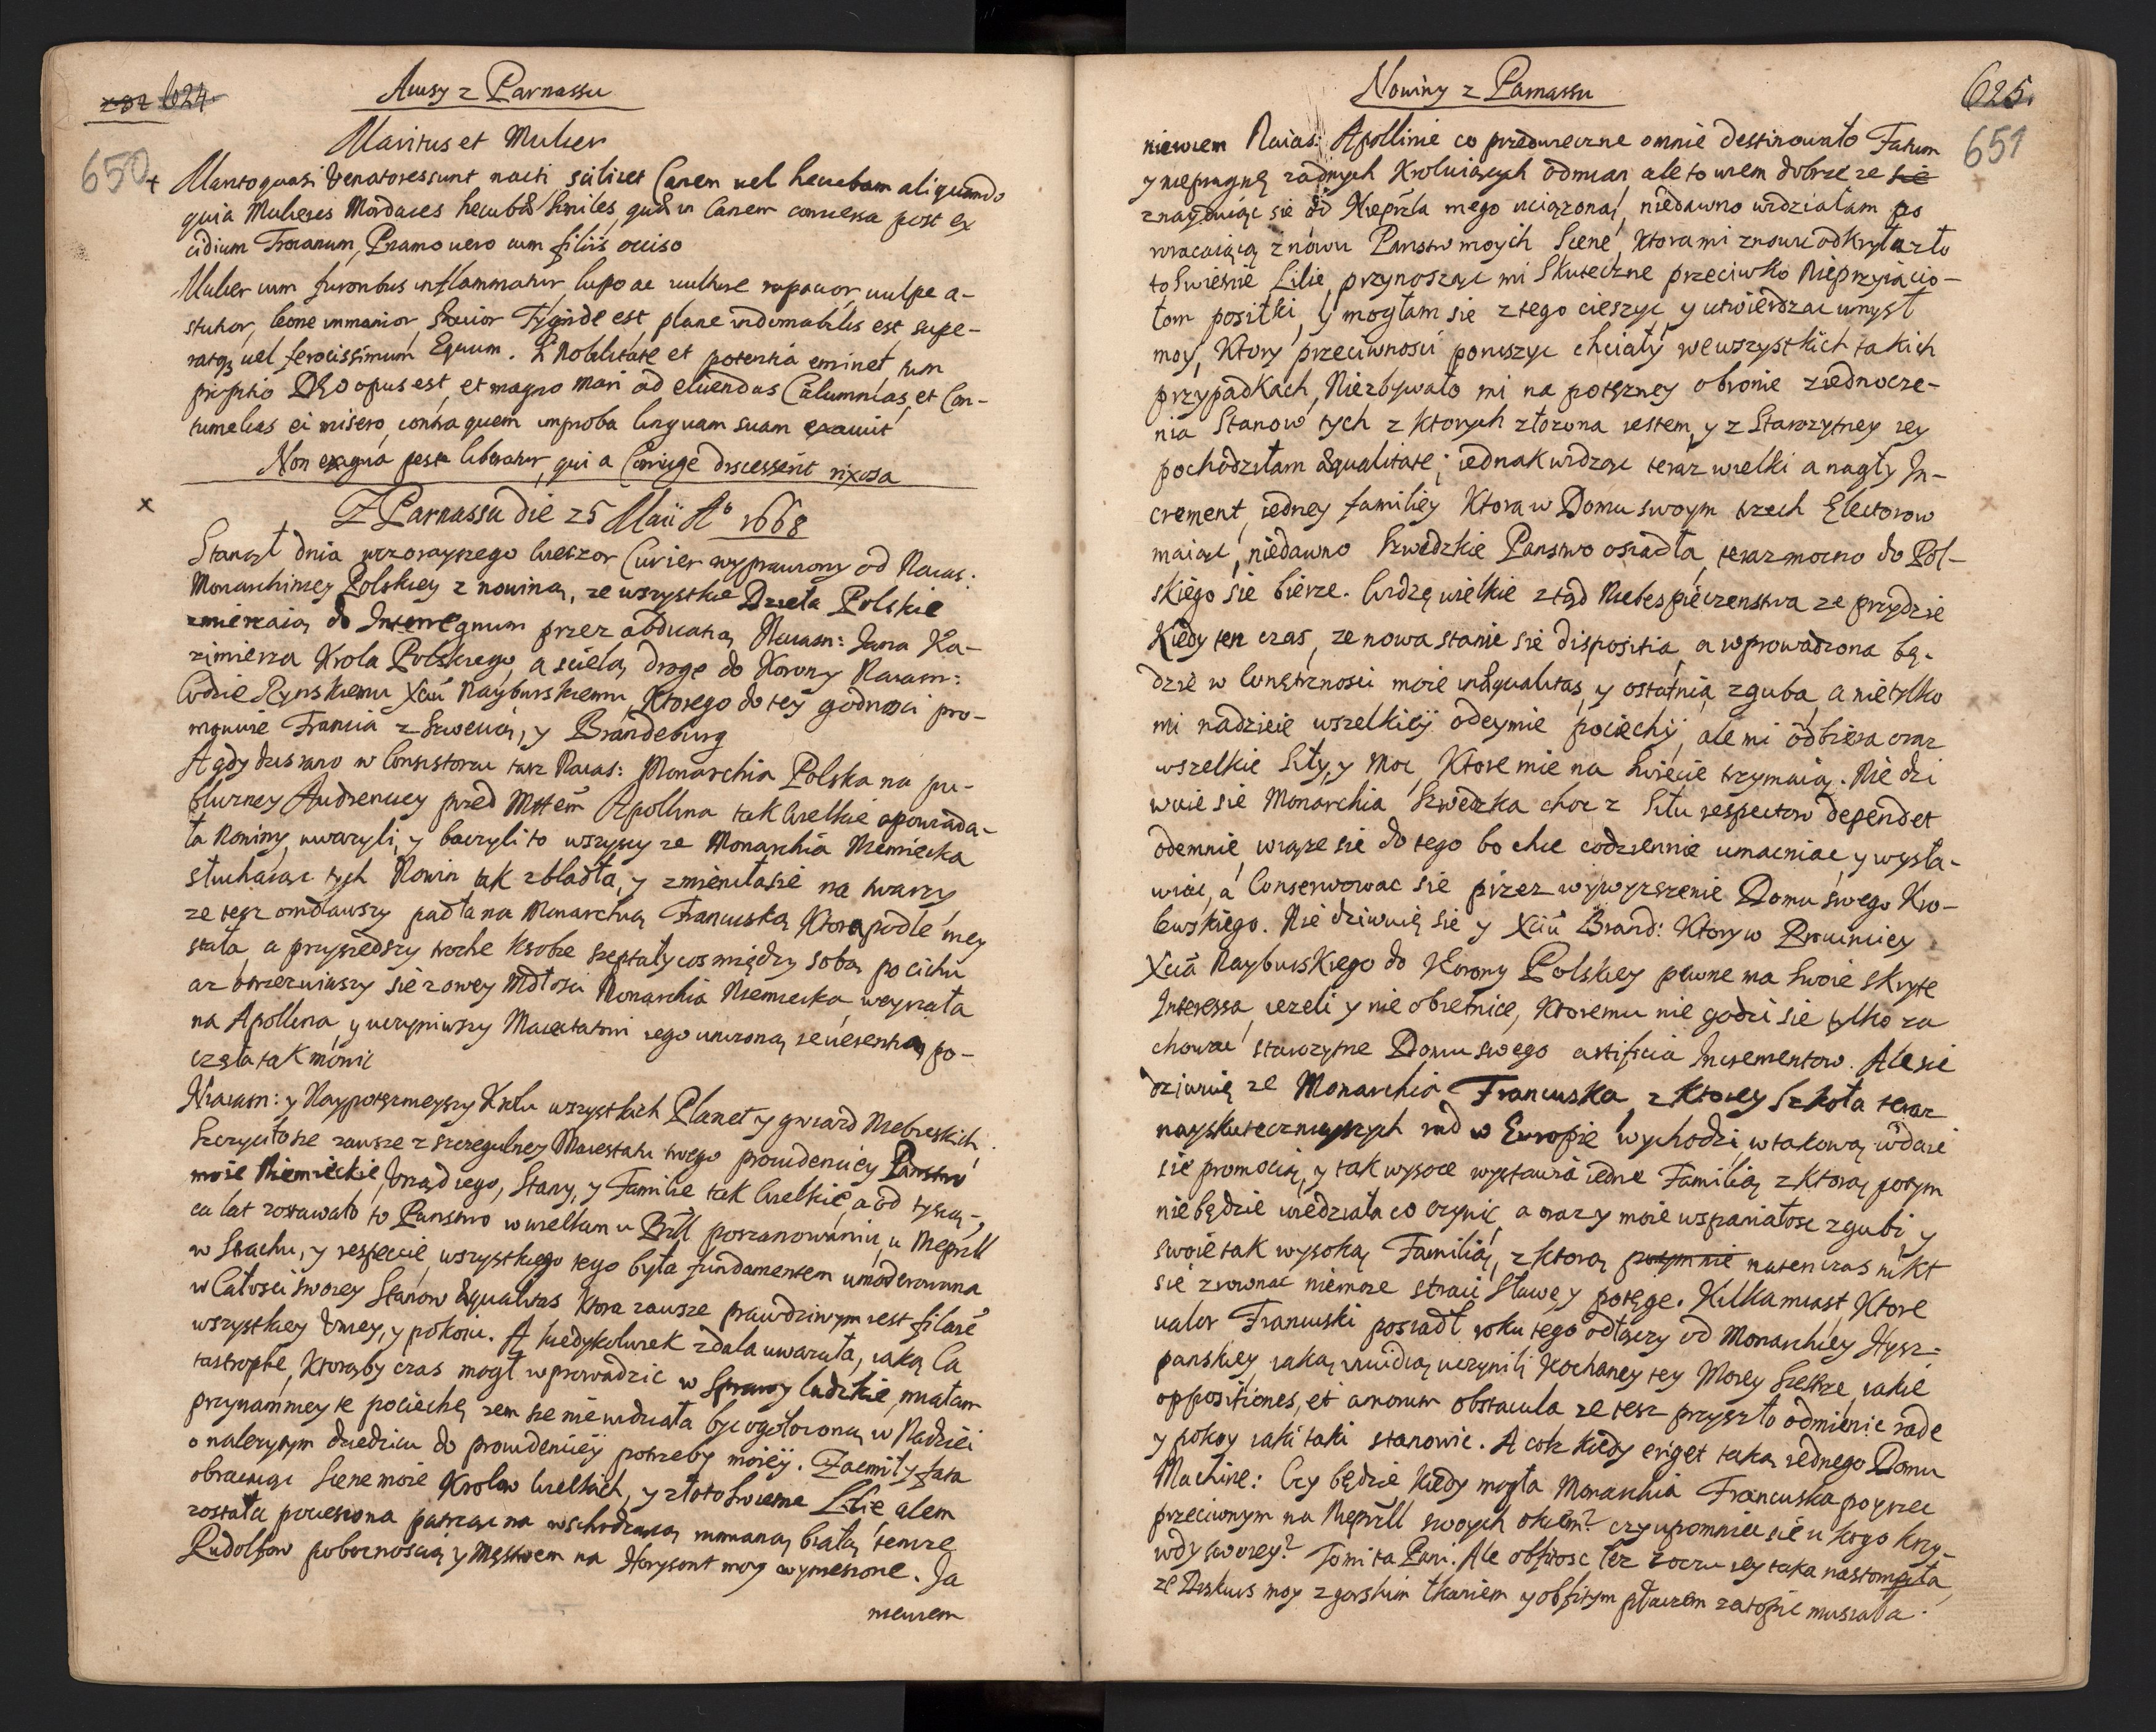 624.
Awisy z Parnassu
650
Maritus et Mulier
Marito quasi Venatores sunt nacti scilicet Canem vel hecubam aliquando
quia Mulieres Mordaces hecubæ similes, quæ in Canem conversa post ex
cidium Troianum, Priamo vero cum filiis occiso
Mulier cum furoribus inflammatur, lupo ac vulture rapacior, vulpe a-
stutior, leone immanior, sævior Tygride est, plane indomabilis est, supe-
ratq3 vel ferocissimum Equum. Si Nobilitate et potentia eminet, tum
propitio DEO opus est, et magno Mari ad eluendas Calumnias, et Con-
tumelias ei misero, contra quem improba linguam suam exacuit
Non exigua peste liberatur, qui a Coniuge discesserit rixosa
Z Parnassu die 25 Maii Aº 1668
Stanął dnia wczorayszego wieczor Curier wyprawiony od Naias:
Monarchiniey Polskiey z nowiną, ze wszystkie Dzieła Polskie
zmierzaią do Interregnum przez abdicatią Naiasn: Jana Ka-
zimierza Krola Polskiego, a scielą drogę do Korony Naiasn:
Lodzie Rynskiemu Xciu Nayburskiemu, Ktorego do tey godnosci pro-
mowuie Francia z Szwecią, y Brandeburg
A gdy dzis rano w Consistorzu tasz Naias: Monarchia Polska na pu-
bliczney Audienciey przed Mttem Apollina tak wielkie opowiada-
ła Nowiny, uwazyli, y baczyli to wszyscy ze Monarchia Niemiecka
słuchaiąc tych Nowin tak zbladła, y zmieniła sie na twarzy
ze tesz omdlawszy padła na Monarchią Francuską Ktora podle niey
stała, a przyszedszy troche ksobie szeptały cos między sobą po cichu
az otrzezwiwszy sie z owey Mdłosci Monarchia Niemiecka, weyrzała
na Apollina, y uczyniwszy Maiestatowi iego unizoną reuerentią po-
częła tak mowic
Niaiasn: y Naypotęznieyszy Krolu wszystkich Planet y gwiazd Niebieskich
Szczyciło sie zawsze z szczegulney Maiestatu twego prouidenciey Panstwo
moie Niemieckie, Urząd iego, Stany, y Familie tak wielkie, a od tysią-
ca lat zostawało to Panstwo w wielkim u Przll poszanowaniu, u Nieprzll
w Strachu, y respecie, wszystkiego tego była fundamentem umoderowana
w Całosci swoiey Stanow æqualitas ktora zawsze prawdziwym iest filaré
wszystkiey Uniey, y pokoiu. A kiedykolwiek zdala uwazała, iaką Ca
tastrophę, Ktorąby czas mogł wprowadzic w Sprawy ludzkie, miałam
przynamniey te pociechę zem sie nie widziała byc ogołoconą w Nadziei
o nalezytym dziedzicu do prouidenciey potrzeby moiey. Zacmiły fata
obracaiąc Scene moie Krolow wielkich, y złoto swietne Lilie, alem
została pocieszona patrząc na wschodzącą rumianą białą tenize
Rudolfow poboznoscią y Męstwem na Horyzont moy wyniesione. Ja
niewiem
Nowiny z Parnassu
625.
651
niewiem Naias: Apollinie co przedwieczne o mnie destinowało Fatum
y niepragnę zadnych Kroluiących odmian, ale to wiem dobrze ze
znayduiąc sie od Nieprzla mego uciązoną, niedawno widziałam po
wracaiącą znowu Panstw moych Scene, Ktora mi znowu odkryła zło
to swietne Lilie, przynosząc mi Skuteczne przeciwko Nieprzyiacio-
łom positki, y mogłam się z tego cieszyc, y utwierdzac umysł
moy, Ktory przeciwnosci poruszyc chciały, we wszystkich takich
przypadkach, Niezbywało mi na potęzney obronie ziednocze-
nia Stanow tych z Ktorych złozona iestem, y z Starozytney iey
pochodziłam æqualitate; iednak widząc teraz wielki a nagły In-
crement, iedney familiey Ktora w Domu swoym trzech Electorow
maiąc, niedawno Szwedzkie Panstwo osiadła, teraz mocno do Pol-
skiego sie bierze. Widzę wielkie ztąd Niebespieczenstwa ze przydzie
Kiedy ten czas, ze nowa stanie sie dispositia, a wprowadzona bę-
dzie w Wnętrznosci moie inæqualitas, y ostatnia zguba, a nie tylko
mi nadzieie wszelkiey odeymie pociechy, ale mi odbiera oraz
wszelkie Siły, y Moc, Ktore mie na swiecie trzymaią. Nie dzi
wuie sie Monarchia Szwedzka choc z Siłu respectow dependet
odemnie, wiąze sie do tego bo chce codziennie umacniac, y wysta-
wiac, a Conserwowac sie przez wywyzszenie Domu swego Kro-
lewskiego. Nie dziwuię się y Xciu Brand: Ktory w Promociey
Xcia Nayburskiego do Korony Polskiey pewne ma swoie skryte
Interessa, iezeli y nie obietnice, Ktoremu nie godzi sie tylko za
chowac starozytne Domu swego artificia Incrementow. Ale sie
dziwuię ze Monarchia Francuska, z Ktorey Szkoła teraz
nayskutecznieyszych rad w Europie wychodzi, w takową wdaie
sie promocią, y tak wysoce wystawia iedne Familią, z Ktorą potym
nie będzie wiedziała co czynic, a oraz y moie wspaniałosc zgubi, y
swoie tak wysoką Familią, z Ktorą potym nie natenczas nikt
sie zrownac niemoze straci Sławę y potęge. Kilka miast, Ktore
valor Francuski posiadł roku tego odłączy od Monarchiey Hysz:
panskiey, iaką inuidią uczynili Kochaney tey Moiey Siestrze, iakie
oppositiones, et amorum obstacula ze tesz przyszło odmienic rade
y pokoy iaki taki stanowic. A coz kiedy eriget taką iednego Domu
Machine: Czy będzie kiedy mogła Monarchia Francuska poyrzec
przeciwnym na Nieprzll swoych okiem? czy upomniec sie u kogo krzy-
wdy swoiey? Tomita Pani. Ale obfitosc łez z oczu iey taka nastompiła,
ze Diskurs moy z gorskim łkaniem y obfitym płaczem zatopic musiała.